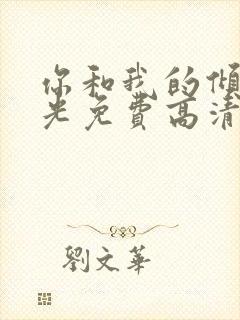 你和我的倾
光免费高清
劉文華